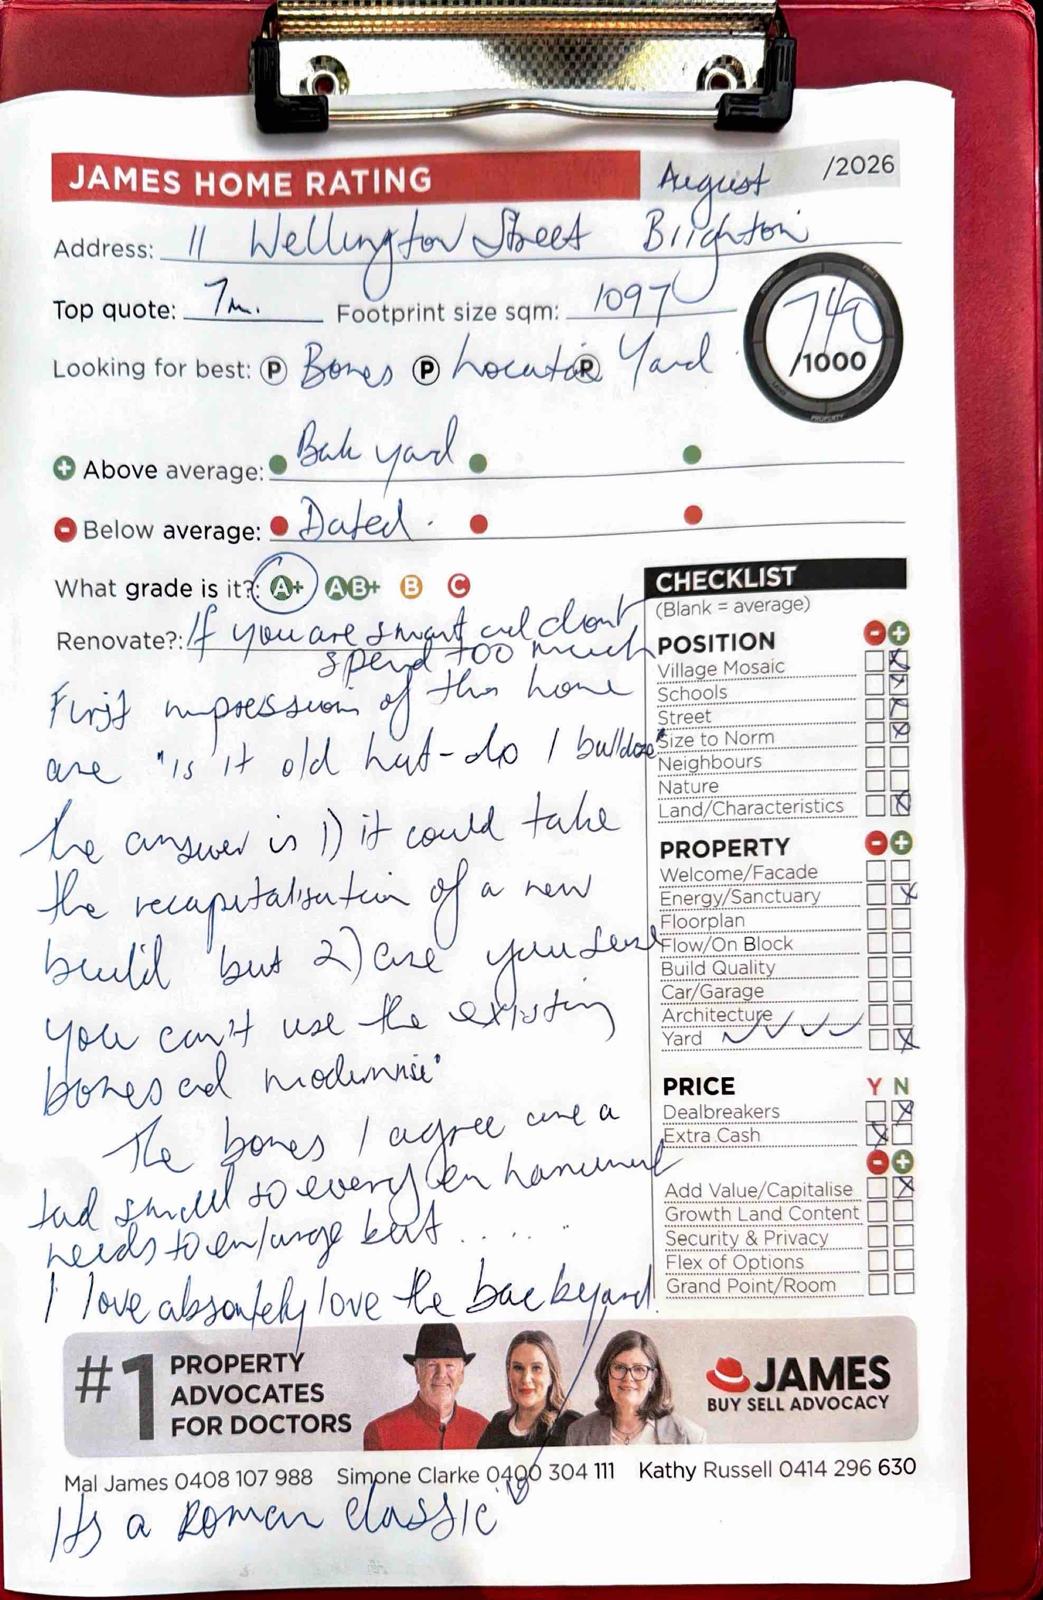 JAMES HOME RATING August /2026
Address: 11 Wellington Street Brighton
Top quote: 7m. Footprint size sqm: 1097
740 /1000
Looking for best: P Bones P Location P Yard
Above average: Back yard
Below average: Dated.
What grade is it?: A+ AB+ B C
Renovate?: If you are smart and dont
spend too much
First impressions of this home
are "is it old hat - do I bulldoze"
the answer is 1) it could take
the recapitalisation of a new
build but 2) are you sure
you can't use the existing
bones and modernise"
The bones I agree are a
tad small so every enhancement
needs to enlarge but .....
I love absolutely love the backyard.
CHECKLIST
(Blank = average)
POSITION - +
Village Mosaic
Schools
Street
Size to Norm
Neighbours
Nature
Land/Characteristics
PROPERTY - +
Welcome/Facade
Energy/Sanctuary
Floorplan
Flow/On Block
Build Quality
Car/Garage
Architecture
Yard
PRICE Y N
Dealbreakers
Extra Cash
- +
Add Value/Capitalise
Growth Land Content
Security & Privacy
Flex of Options
Grand Point/Room
#1 PROPERTY
ADVOCATES
FOR DOCTORS
JAMES
BUY SELL ADVOCACY
Mal James 0408 107 988 Simone Clarke 0400 304 111 Kathy Russell 0414 296 630
Its a Roman classic